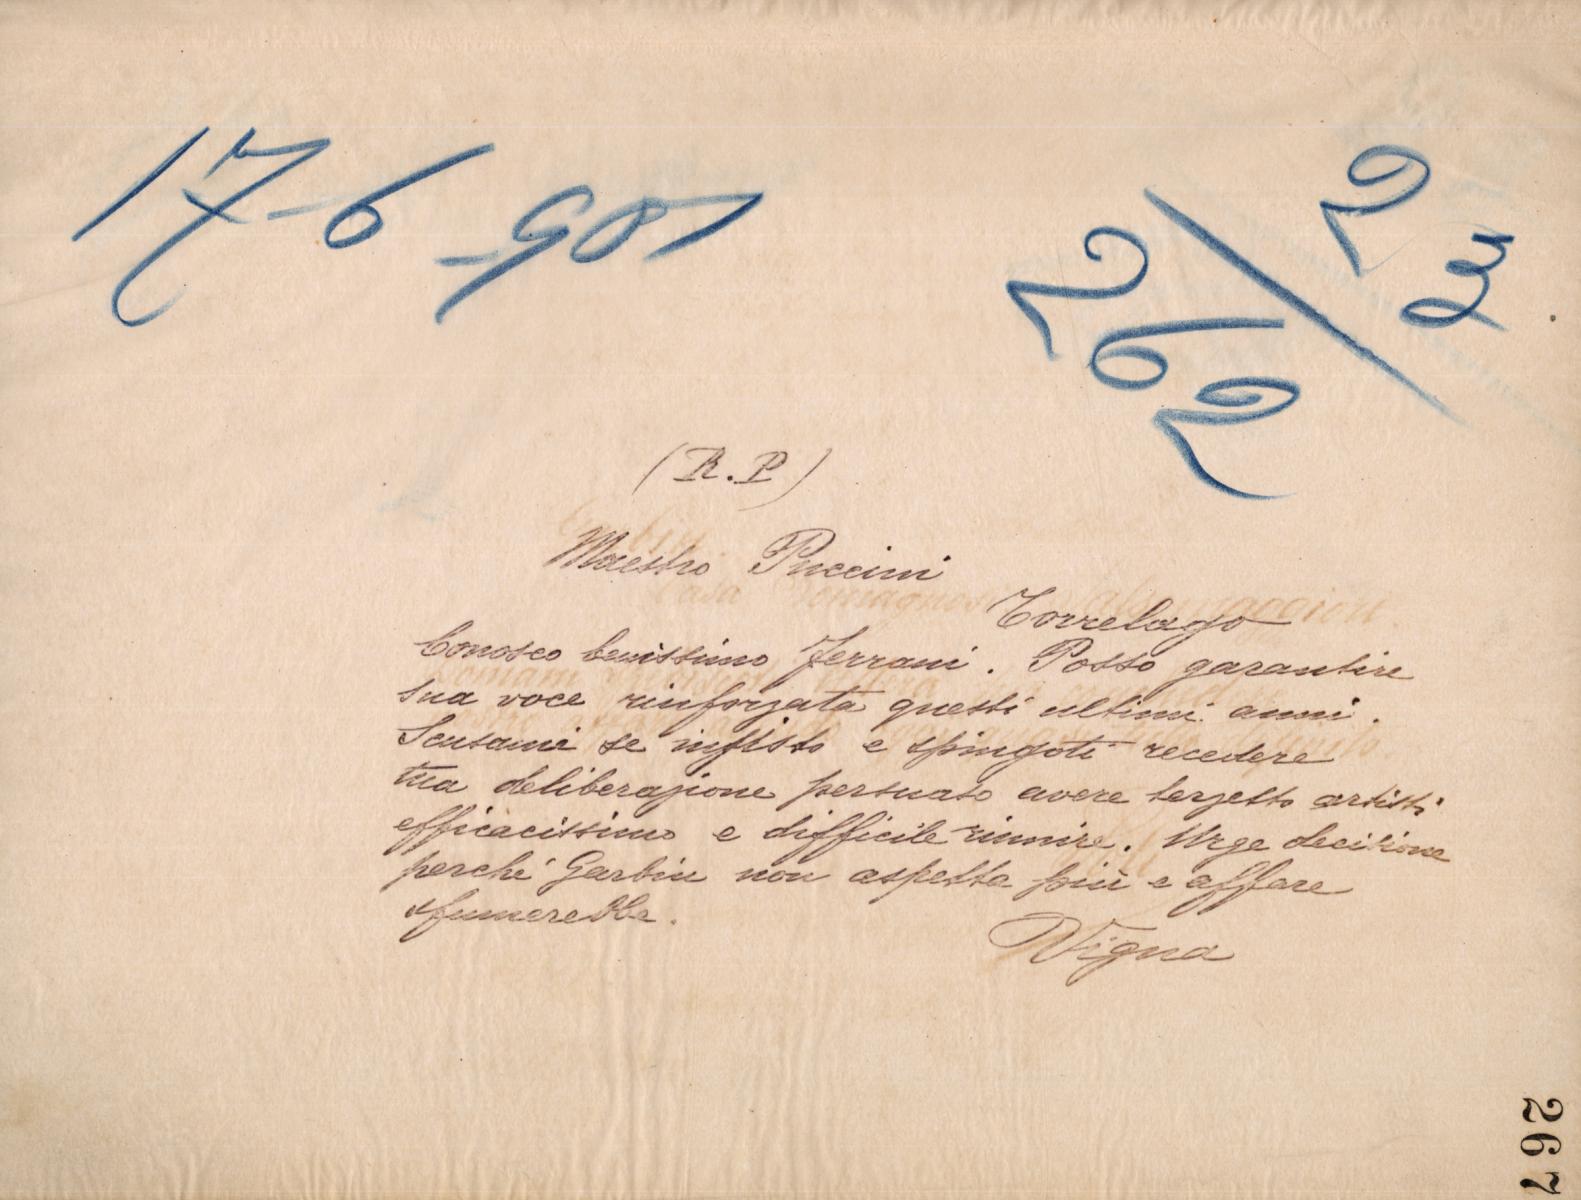 17-6-901
2/262
23
(R.P)
Maestro Puccini
Torrelago
Conosco benissimo Ferrani. Posso garantire
sua voce rinforzata questi ultimi anni.
Scusami se insisto e spingoti recedere
tua deliberazione persuaso avere terzetto artisti
efficacissimo e difficile riunire. Urge decisione
perché Garbin non aspetta più e affare
sfumerebbe.
Vigna
267